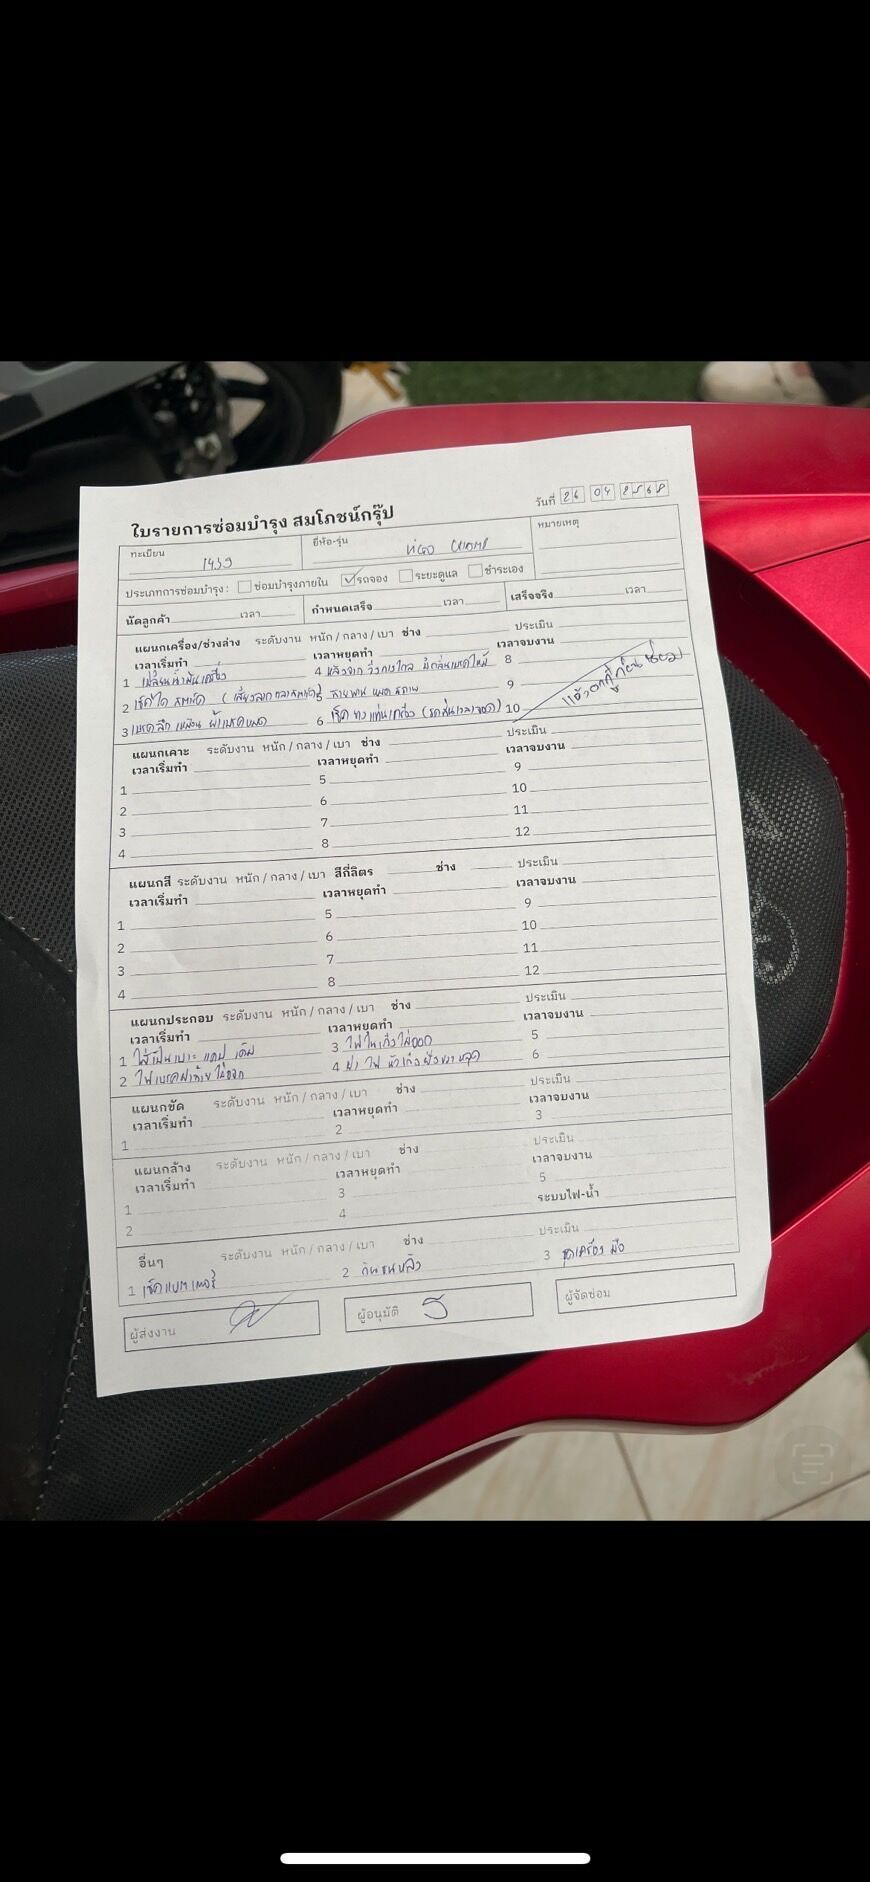 ใบรายการซ่อมบำรุง สมโภชน์กรุ๊ป
วันที่ 26 04 2568
ทะเบียน 1439
ยี่ห้อ-รุ่น VIGO CHAMP
หมายเหตุ
ประเภทการซ่อมบำรุง: ซ่อมบำรุงภายใน ✓รถจอง ระยะดูแล ชำระเอง
นัดลูกค้า เวลา กำหนดเสร็จ เวลา เสร็จจริง เวลา
แผนกเครื่อง/ช่วงล่าง ระดับงาน หนัก / กลาง / เบา ช่าง ประเมิน
เวลาเริ่มทำ เวลาหยุดทำ เวลาจบงาน
1 เปลี่ยนน้ำมันเครื่อง 4 หลังจากวิ่งทางไกล มีกลิ่นเบรคไหม้ 8
2 เช็คไดสตาร์ท 5 สายพาน หมดสภาพ 9
3 เบรคลึก เหมือน ผ้าเบรคหมด 6 เช็คยางแท่นเครื่อง (รถสั่นเวลาจอด) 10
แผนกเคาะ ระดับงาน หนัก / กลาง / เบา ช่าง ประเมิน
เวลาเริ่มทำ เวลาหยุดทำ เวลาจบงาน
1 5 9
2 6 10
3 7 11
4 8 12
แผนกสี ระดับงาน หนัก / กลาง / เบา สีกี่ลิตร ช่าง ประเมิน
เวลาเริ่มทำ เวลาหยุดทำ เวลาจบงาน
1 5 9
2 6 10
3 7 11
4 8 12
แผนกประกอบ ระดับงาน หนัก / กลาง / เบา ช่าง ประเมิน
เวลาเริ่มทำ เวลาหยุดทำ เวลาจบงาน
1 ใส่ผ้าเบาะ แคป เดิม 3 ไฟในเก๋งไม่ออก 5
2 ไฟเบรคฝาท้ายไม่ออก 4 ฝา ไฟ หัวเก๋งฝั่งขวาหลุด 6
แผนกขัด ระดับงาน หนัก / กลาง / เบา ช่าง ประเมิน
เวลาเริ่มทำ เวลาหยุดทำ เวลาจบงาน
1 2 3
แผนกล้าง ระดับงาน หนัก / กลาง / เบา ช่าง ประเมิน
เวลาเริ่มทำ เวลาหยุดทำ เวลาจบงาน
1 3 5
2 4 ระบบไฟ-น้ำ
อื่นๆ ระดับงาน หนัก / กลาง / เบา ช่าง ประเมิน
1 เช็คแบตเตอรี่ 2 กันชนหลัง 3 ชุดเครื่องมือ
ผู้ส่งงาน ผู้อนุมัติ ผู้จัดซ่อม